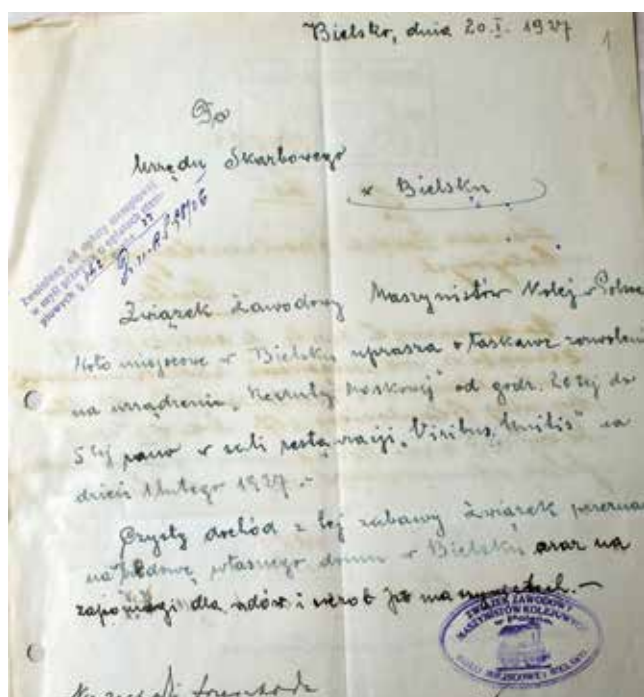 Bielsko, dnia 20.I. 1927
1
Do
Urzędu Skarbowego
w Bielsku
Zwolniony od opłaty stemplowej
w myśl przepisów o opłatach stem-
plowych
Związek Zawodowy Maszynistów Kolej. w Polsce
Koło miejscowe w Bielsku uprasza o łaskawe zezwolenie
na urządzenie „Reduty Maskowej" od godz. 20tej do
5tej rano w sali restauracji „Viribus Unitis" na
dzień 1 lutego 1927.-
Czysty dochód z tej zabawy Związek przezna
na budowę własnego domu w Bielsku oraz na
zapomogi dla wdów i sierot po maszynistach.-
ZWIĄZEK ZAWODOWY
MASZYNISTÓW KOLEJOWYCH
w Polsce
KOŁO MIEJSCOWE BIELSKO